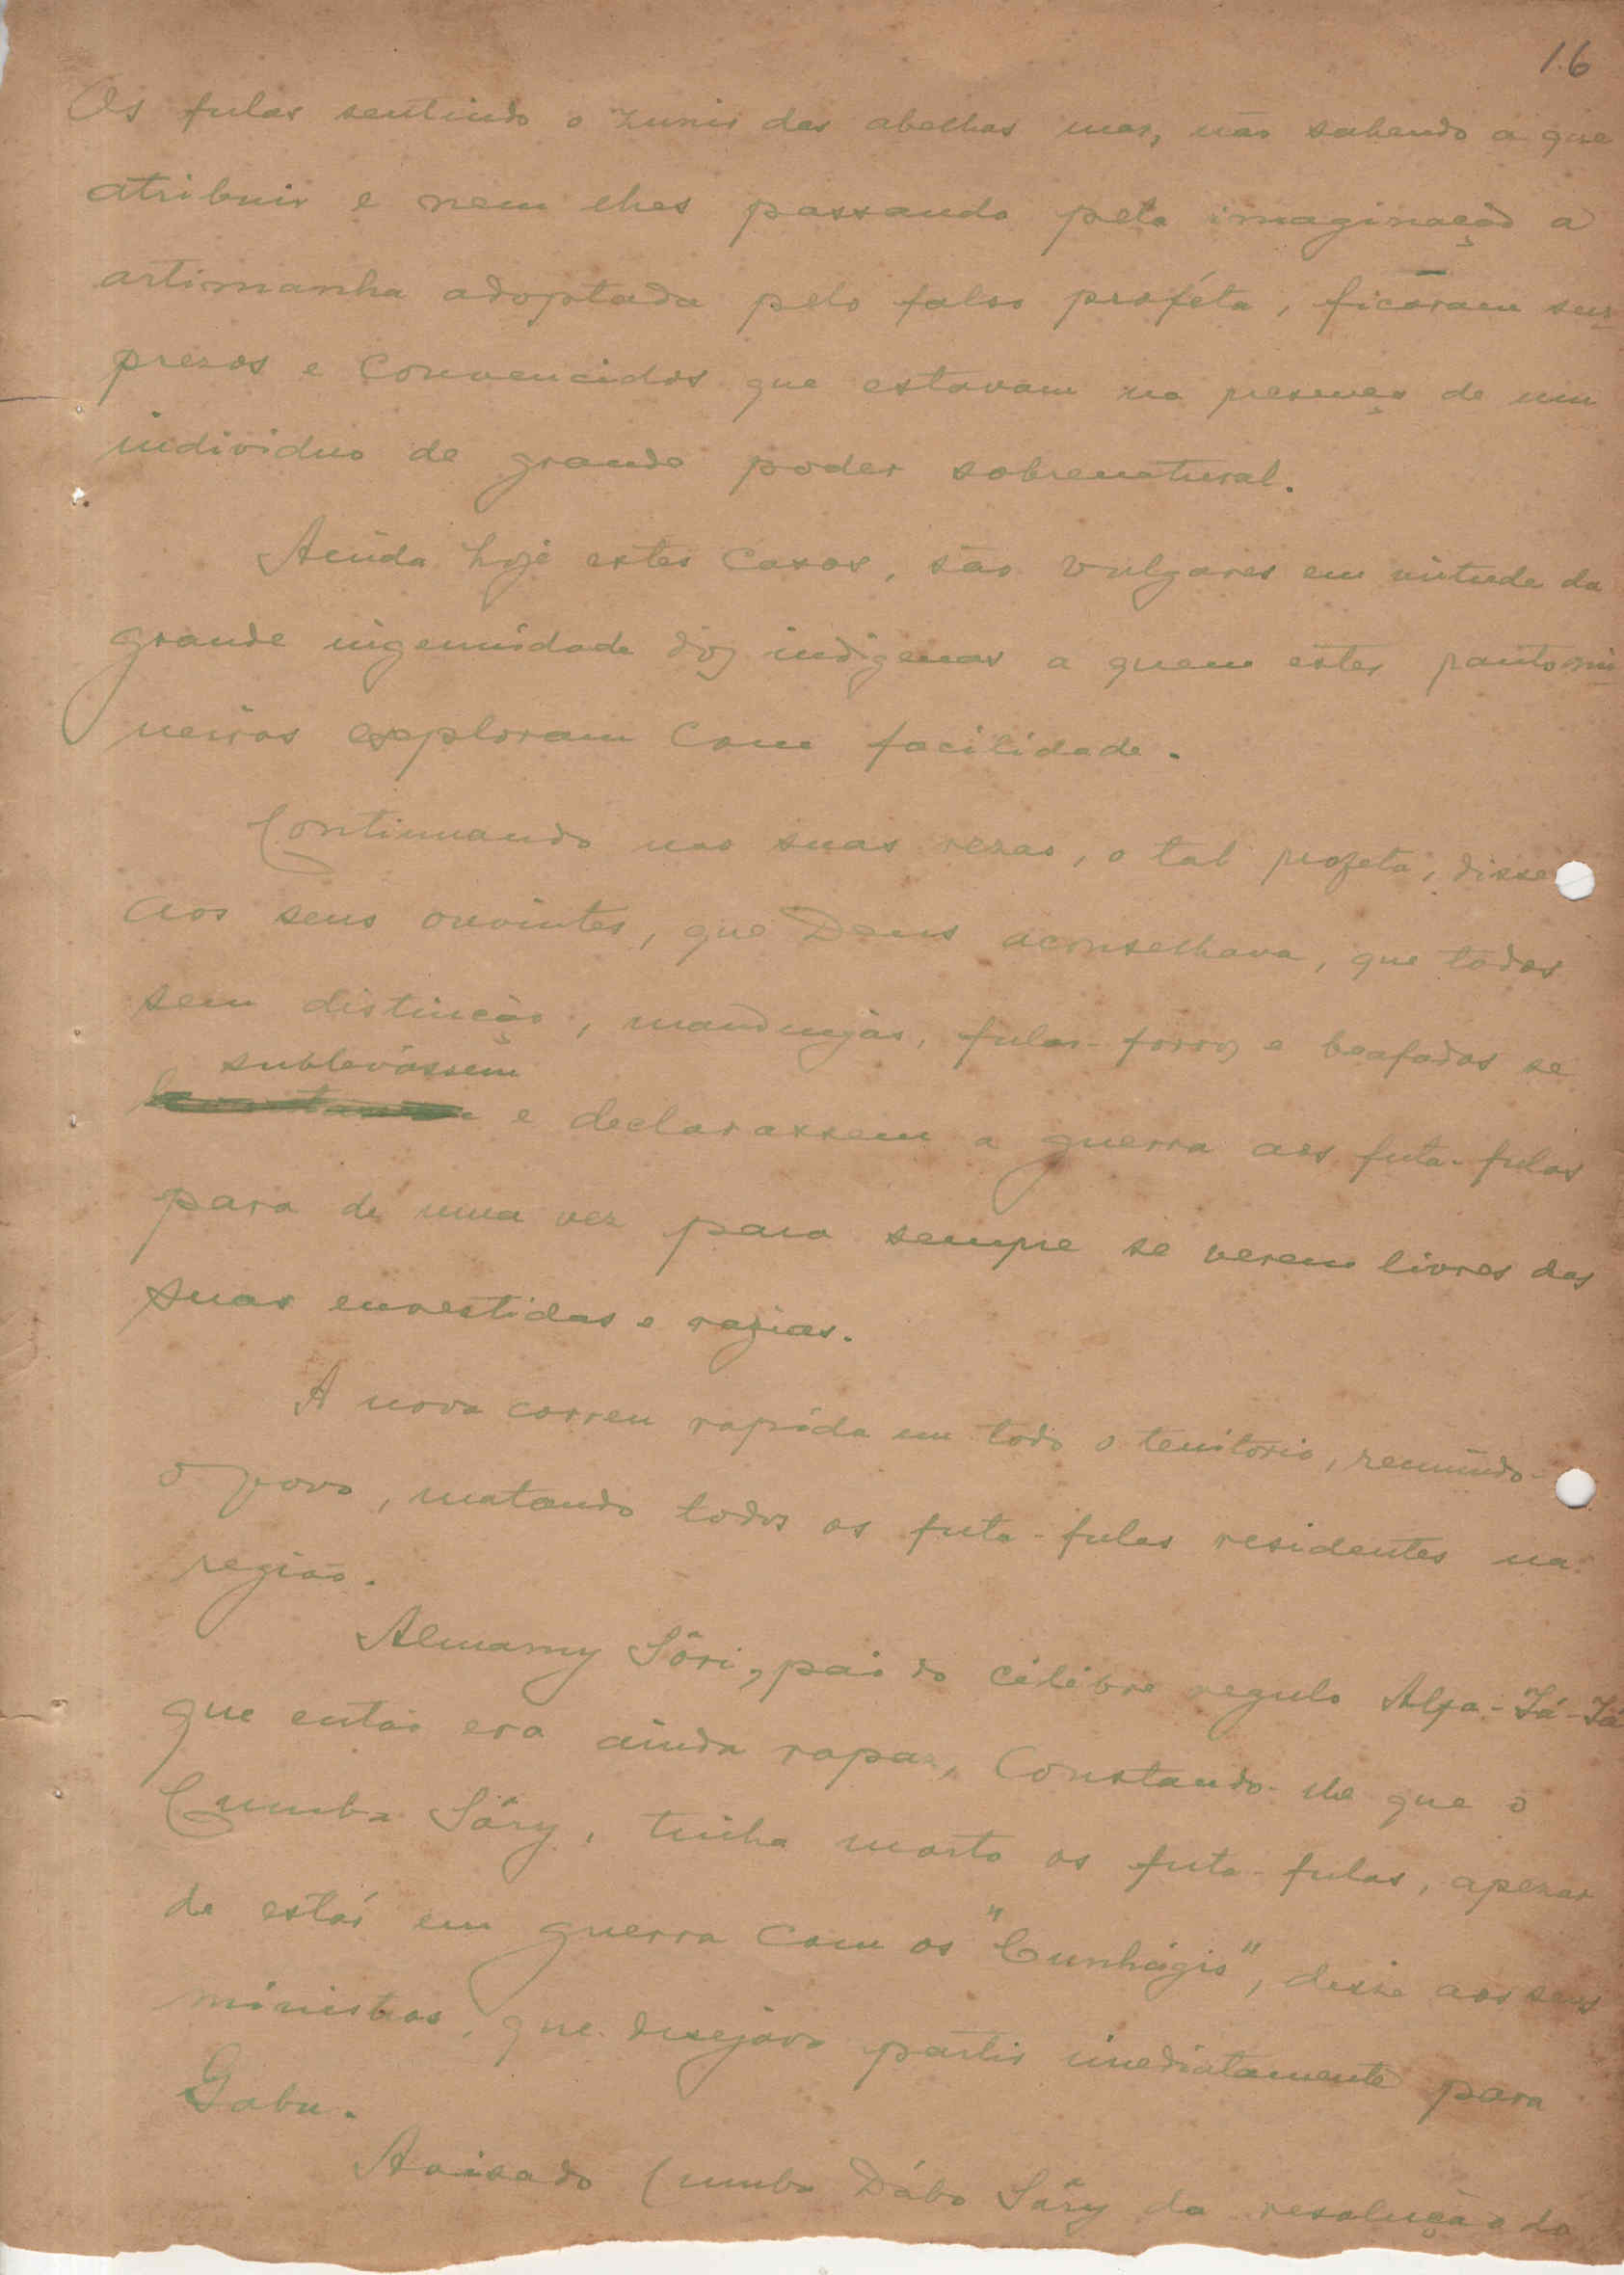 16
Os fulas sentindo o zunir das abelhas mas, não sabendo a que
atribuir e nem lhes passando pela imaginação a
artimanha adoptada pelo falso proféta, ficaram sur-
prezos e convencidos que estavam na presença de um
individuo de grande poder sobrenatural.
Ainda hoje estes casos, são vulgares em virtude da
grande ingenuidade dos indigenas a quem estes pantomi-
neiros exploram com facilidade.
Continuando nas suas rezas, o tal profeta, disse
aos seus ouvintes, que Deus aconselhava, que todos
sem distinção, mandingas, fulas-forros e beafadas se
sublevássem
e declarassem a guerra aos futa-fulas
para de uma vez para sempre se verem livres das
suas envestidas e razias.
A nova correu rapida em todo o territorio, reunindo-
o povo, matando todos os futa-fulas residentes na
região.
Almamy Sôri, pai do célébre regulo Alfa-Iá-Iá
que então era ainda rapaz, constando-lhe que o
Cumba Sáry, tinha morto os futa-fulas, apezar
de estár em guerra com os "Cunhágis", disse aos seus
ministros, que desejava partir imediatamente para
Gabu.
Avisado Cumba Dábo Sáry da resolução do